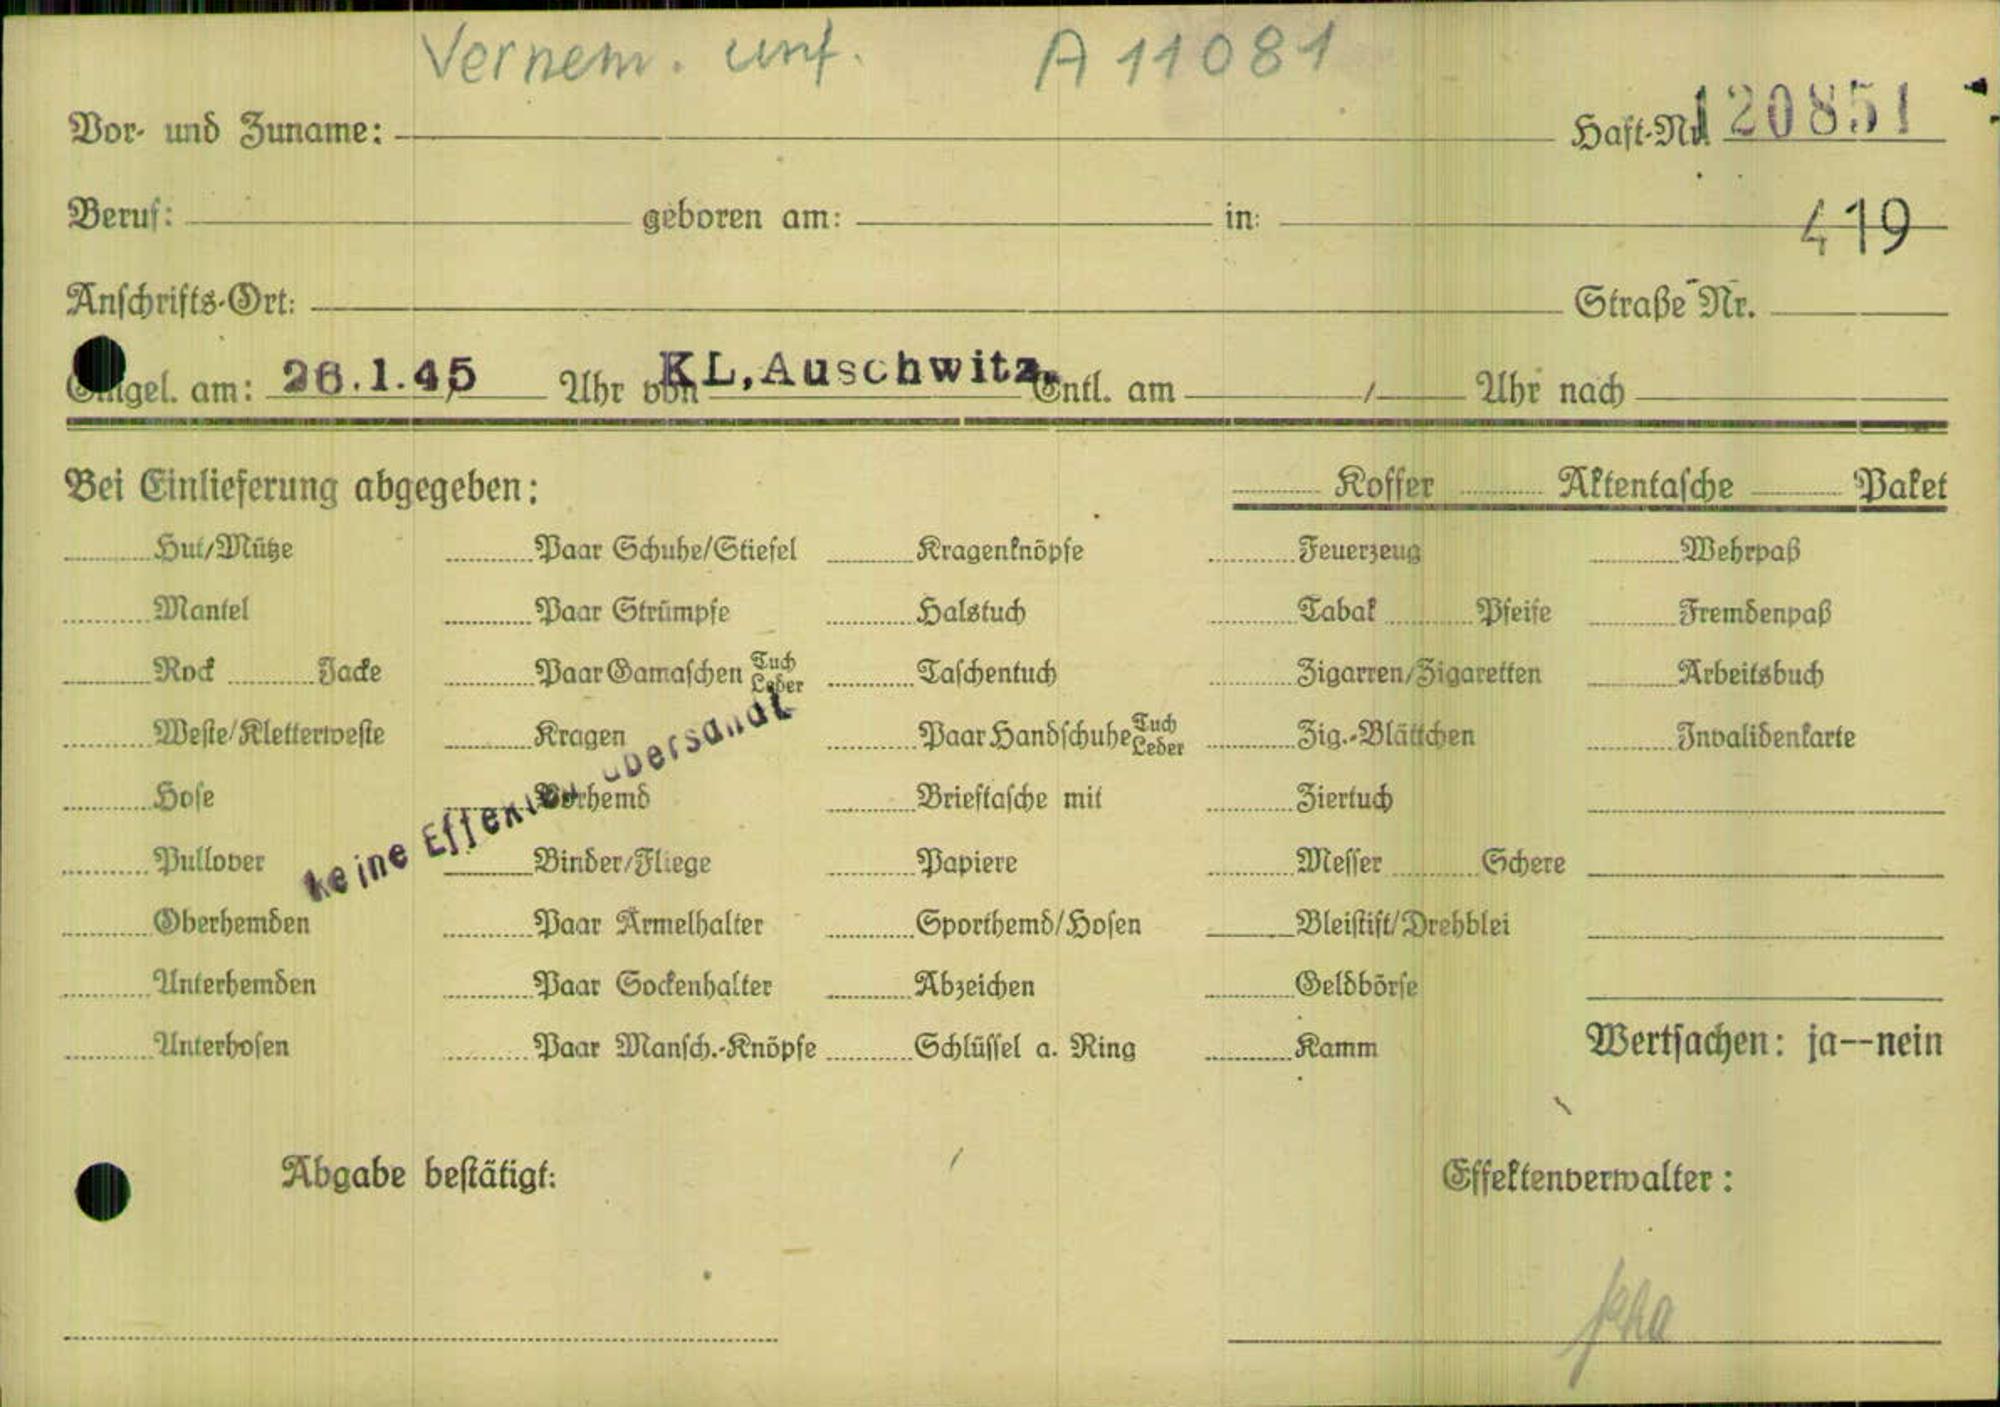 Vernem. unf. A 11081
Vor- und Zuname: Haft-Nr. 120851
Beruf: geboren am: in: 419
Anschrifts-Ort: Straße Nr.
Eingel. am: 26.1.45 Uhr von KL, Auschwitz. Entl. am / Uhr nach
Bei Einlieferung abgegeben: Koffer Aktentasche Paket
Hut/Mütze Paar Schuhe/Stiefel Kragenknöpfe Feuerzeug Wehrpaß
Mantel Paar Strümpfe Halstuch Tabak Pfeife Fremdenpaß
Rock Jacke Paar Gamaschen Tuch Leder Taschentuch Zigarren/Zigaretten Arbeitsbuch
Weste/Kletterweste Kragen Paar Handschuhe Tuch Leder Zig.-Blättchen Invalidenkarte
Hose Vorhemd Brieftasche mit Ziertuch
keine Effekten übersandt
Pullover Binder/Fliege Papiere Messer Schere
Oberhemden Paar Ärmelhalter Sporthemd/Hosen Bleistift/Drehblei
Unterhemden Paar Sockenhalter Abzeichen Geldbörse
Unterhosen Paar Mansch.-Knöpfe Schlüssel a. Ring Kamm Wertsachen: ja--nein
Abgabe bestätigt: Effektenverwalter: